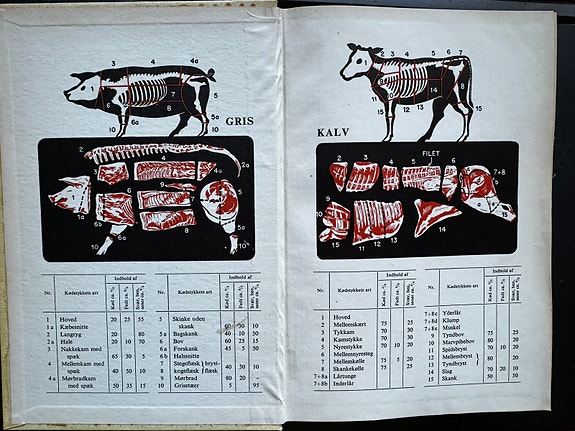 3
4
4a
1
6
7
5
8
10
6a
5a
10
GRIS
2
3
4
4a
2a
1
6
9
7
5
1a
6b
6a
8
10
10
Indhold af
Indhold af
Nr.
Kødstykkets art
Kød ca. %
Fedt ca. %
Nr.
Kødstykkets art
Kød ca. %
Fedt ca. %
1 Hoved 20 25 55
1a Kæbesnitte
2 Langryg 20 80
2a Hale 20 10 70
3 Nakkekam med
spæk 65 30 5
4 Mellemkam med
spæk
4a Mørbradkam
med spæk 50 35 15
5 Skinke uden
skank 60 30 10
5a Bagskank 40 10 50
6 Bov 60 25 15
6a Forskank 45 5 50
6b Halssnitte
7 Stegeflæsk bryst-
8 kogeflæsk flæsk
9 Mørbrad 80 20
10 Grisetæer 5 95
2 3 4 5 6 7
1
8
9
10
11
12
13
14
15
15
KALV
FILET
2
3
4
5
6
7+8
9
10
15
11
12
13
14
15
Indhold af
Indhold af
Nr.
Kødstykkets art
Kød ca. %
Fedt ca. %
Nr.
Kødstykkets art
Kød ca. %
Fedt ca. %
1 Hoved
2 Mellemskært 75 25
3 Tykkam 70 30
4 Kamsteg 70 30
5 Nyrestykke 70 10 20
6 Mellemnyresteg
7 Mellemkølle 75 5 20
8 Skankekølle 75 25
7+8a Lårtunge
7+8b Inderlår
7+8c Yderlår
7+8d Klump
7+8e Muskel
9 Tyndbov 75 25
10 Marvpibebov 80 20
11 Spidsbryst 70 30
12 Mellembryst
13 Tyndbryst 80 20
14 Slag 70 20 10
15 Skank 50 50